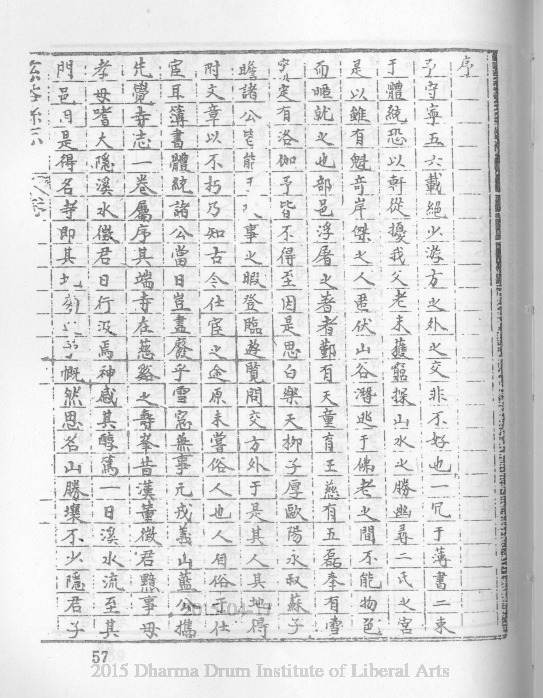 序
予守寧五六載絕少遊方之外之交非不好也一冗于薄書二束
于體統恐以軒從擾我父老未獲窮探山水之勝幽尋二氏之宮
是以雖有魁奇岸傑之人君伏山谷潛逃于佛老之間不能物色
而暱就之也部邑浮屠之著者鄞有天童育王慈有五磊奉有雪
竇定有洛伽予皆不得至因是思白樂天柳子厚歐陽永叔蘇子
瞻諸公皆能 事之暇登臨遊覽問交方外于是其人其地得
附文章以不朽乃知古今仕宦之途原未嘗俗人也人自俗于仕
宦耳簿書體統諸公當日豈盡廢乎雪窓無事元戎義山藍公攜
先覺寺志一卷屬序其端寺在慈谿之壽峯昔漢董徵君黯事母
孝母嗜大隱溪水徵君日行汲焉神感其醇篤一日溪水流至其
門邑由是得名寺即其地 慨然思名山勝壤不少隱君子
57
2015 Dharma Drum Institute of Liberal Arts